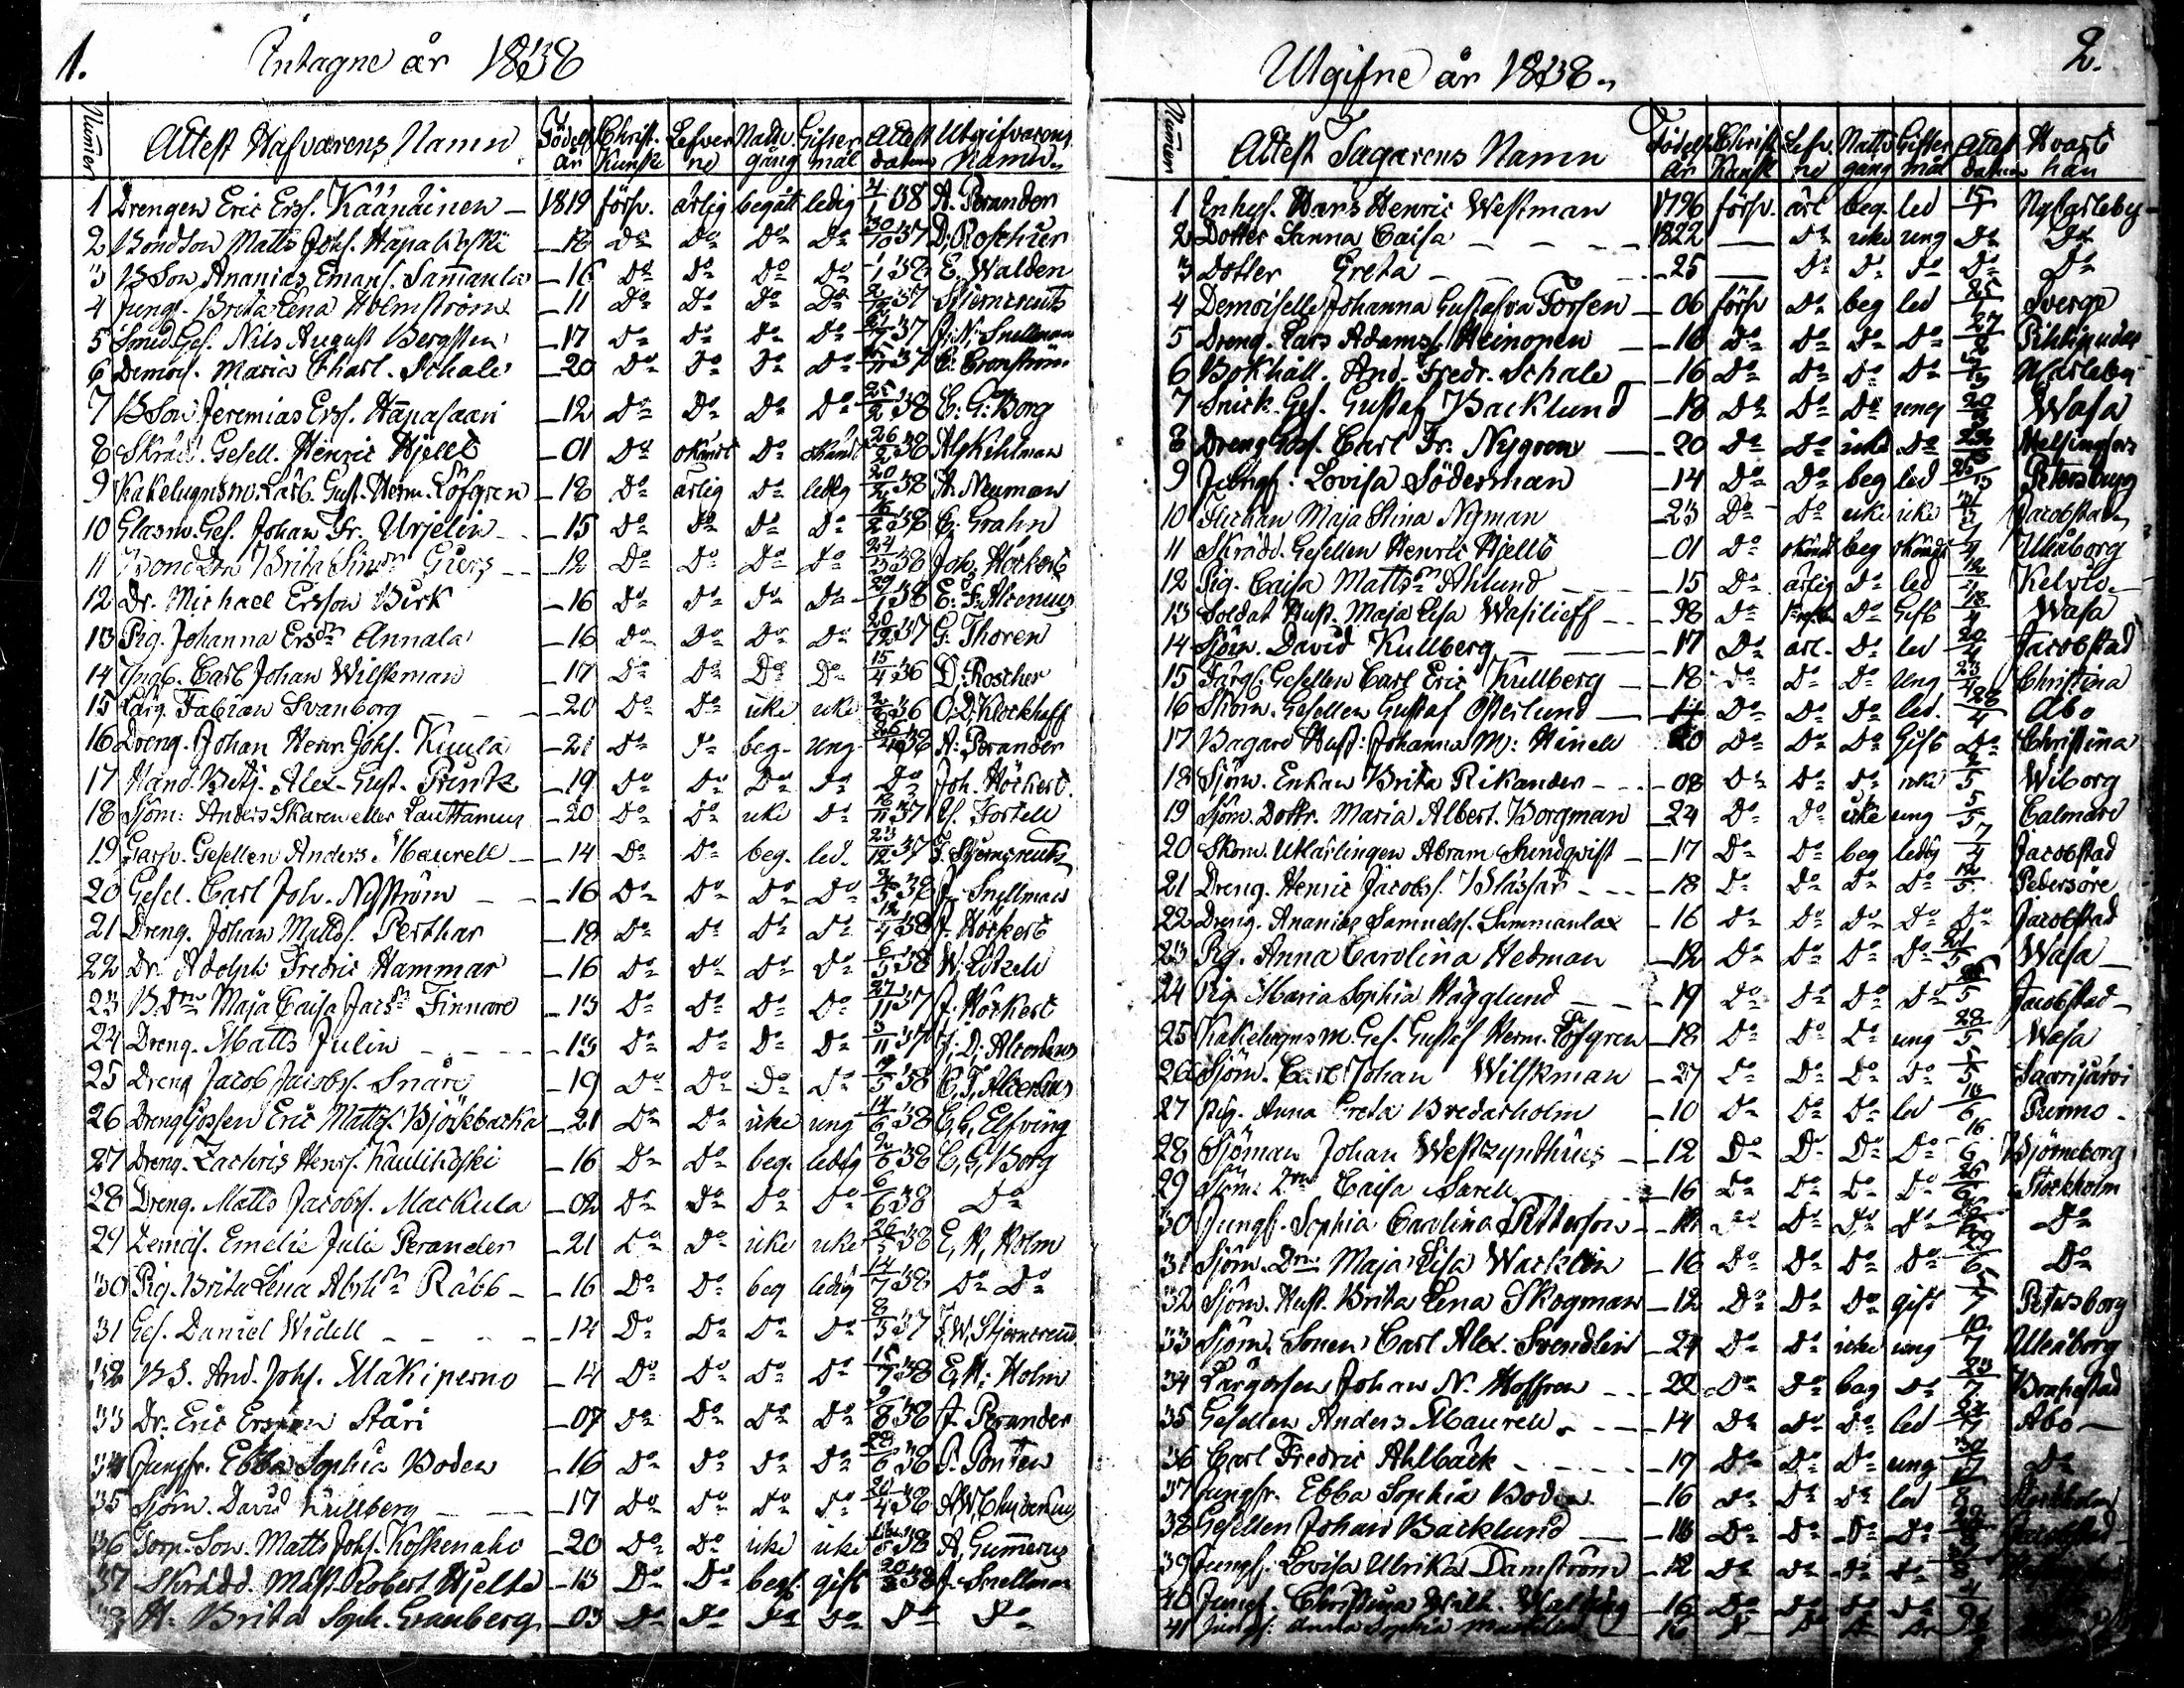 1.
Intagne år 1838
Numer Attest Hafvarens Namn Födels år Christ. Kunsk Lefverne Nattv. gång Giftermål Attest datum Utgifvarens Namn
1 Drengen Eric Erss. Käänäinen 1819 försv. ärlig begått ledig 4/1 38 A. Perander
2 Bondson Matts Johs. Hapakoski 18 Do Do Do Do 30/10 37 D. Roschier
3 B Son Ananias Emans. Sam̄anla 16 Do Do Do Do 38 E. Walden
4 Jungf. Brita Lena Holmström 11 Do Do Do Do 37 Stjerncreutz
5 Smed Ges. Nils August Bergsten 17 Do Do Do Do 37 J. N. Snellman
6 Demois. Maria Charl. Schale 20 Do Do Do Do 37
7 B Son Jeremias Erss. Hapasaari 12 Do Do Do Do 25/2 38 C. G. Borg
8 Skrädd. Gesell. Henric Hjelt 01 Do okändt Do okändt 26/2 38 Kihlman
9 Kakelugnsm. Lärl. Gust. Herm. Löfgren 18 Do ärlig do ledig 20/2 38 A. Neuman
10 Glasm. Ges. Johan Fr. Urjelin 15 Do Do Do Do 38 C. Grahn
11 Bond Dtr Brita Simsdr Giers 12 Do Do Do Do 24/3 38 Joh. Höckert
12 Dr. Michael Ersson Birk 16 Do Do Do Do 29/1 38 E. F. Alcenius
13 Pig. Johanna Ersdr Annala 16 Do Do Do Do 20/12 37 G. Thoren
14 Yngl. Carl Johan Wilskman 17 Do Do Do Do 15/4 36 D. Roscher
15 Lärg. Fabian Svanborg 20 Do Do icke icke 36 Klockhoff
16 Dreng. Johan Henr. Johs. Kuula 21 Do Do beg. ung 38 A. Perander
17 Hand. Betj. Alex. Gust. Printz 19 Do Do Do Do Do Joh. Höckert.
18 Sjöm: Anders Skaren eller Lauttamus 20 Do Do icke Do 37 Forsell
19 Garfv. Gesellen Anders Maurell 14 Do Do beg. led. 23/12 37 Stjerncreutz
20 Gesel. Carl Joh. Nyström 16 Do Do Do Do 38 J. Snellman
21 Dreng. Johan Mattss. Perthar 18 Do Do Do Do 12/4 38 J. Höckert
22 Dr. Adolph Fredric Hammar 16 Do Do Do Do 6/5 38 W. Litzelı
23 B. Dtr Maja Caisa Jacsdr Finnare 13 Do Do Do Do 27/11 37 J. Höckert
24 Dreng. Matts Julin 13 Do Do Do Do 3/11 37 Alcenius
25 Dreng Jacob Jacobss. Snåre 19 Do Do Do Do 38 Alcenius
26 Dreng Gossen Eric Mattss. Björkbacka 21 Do Do icke ung 14/6 38 C. G. Elfving
27 Dreng. Zachris Henrs. Kaulikoski 16 Do Do beg. ledig 38 C. G. Borg
28 Dreng. Matts Jacobss. Mackula 02 Do Do Do Do 6/6 38 Do
29 Demois. Emelie Julie Perander 21 Do Do icke icke 26/5 38 E. H. Holm
30 Pig. Brita Lena Abrhdr Räbb 16 Do Do beg ledig 14/7 38 Do Do
31 Ges. Daniel Widell 14 Do Do Do Do 8/5 37 Stjerncreutz
32 B S. And. Johs. Mäkiperno 14 Do Do Do Do 15/7 38 E. H. Holm
33 Dr. Eric Ersson Ståri 07 Do Do Do Do 9/8 38 A. Perander
34 Jungfr. Ebba Sophia Boden 16 Do Do Do Do 28/6 38 P. Ponten
35 Sjöm. David Kullberg 17 Do Do Do Do 20/4 38 A. W. Chydenius
36 Torp. Son. Matts Johs. Koskenaho 20 Do Do icke icke 38 A. Gum̄erus
37 Skrädd. Mäst. Robert Hjelte 13 Do Do beg. gift 38 J. Snellman
38 H. Brita Soph. Granberg 03 Do Do Do Do Do Do
2.
Utgifne år 1838.
Numer Attest Tagarens Namn Födels år Christ. Kunsk Lefv. ne Nattv gång Gifter mål Attest datum Hvart hän
1 Enhys. Hans Henric Westman 1796 försv. ärl beg. led 15/1 Nycarleby
2 Dotter Sanna Caisa 1822 Do icke ung Do Do
3 Dotter Greta 25 Do Do Do Do Do
4 Demoiselle Johanna Gustafva Forsen 06 försv Do beg led Sverge
5 Dreng. Lars Adamss. Heinonen 16 Do Do Do Do Pihtipudas
6 Bokhåll. And. Fredr. Schale 16 Do Do Do Do NCarleby
7 Snick. Ges. Gustaf Backlund 18 Do Do Do ung Wasa
8 Dreng Goss. Carl Fr. Nygren 20 Do Do icke Do Helsingfors
9 Jungf. Lovisa Söderman 14 Do Do beg led Petersburg
10 Flickan Maja Stina Nyman 23 Do Do icke icke Jacobstad
11 Skrädd. Gesellen Henric Hjelt 01 Do okändt beg okändt Uleåborg
12 Pig. Caisa Mattsdr Ahlund 15 Do ärlig Do led Kelviå
13 Soldat Hust. Maja Lisa Wasilieff 98 Do Do Gift 18/4 Wasa
14 Sjöm. David Kullberg 17 Do ärl. Do led 20/4 Jacobstad
15 Färg. Gesellen Carl Eric Kullberg 18 Do Do Do ung 23/4 Christina
16 Skom. Gesellen Gustaf Österlund 14 Do Do Do led. 28/4 Åbo
17 Bagare Hust. Johanna M: Hinell 20 Do Do Do Gift Do Christina
18 Sjöm. Enkan Brita Rikander 08 Do Do Do icke Wiborg
19 Sjöm. Dottr. Maria Albert. Borgman 24 Do Do icke ung 5/5 Calmare
20 Skom. Utlärlingen Abram Sundqvist 17 Do Do beg ledig 7/4 Jacobstad
21 Dreng. Henric Jacobss. Blåsar 18 Do Do Do Do 12/5 Pedersöre
22 Dreng. Ananias Samuelss. Sammanlax 16 Do Do Do Do Do Jacobstad
23 Pig. Anna Carolina Hedman 12 Do Do Do Do 21/5 Wasa
24 Pig. Maria Sophia Hägglund 19 Do Do Do Do Jacobstad
25 Kakelugnsm. Ges. Gustaf Herm. Löfgren 18 Do Do Do ung 28/5 Wasa
26 Sjöm. Carl Johan Wilskman 27 Do Do Do Do Saarijärvi
27 Pig. Anna Greta Bredarholm 10 Do Do Do led Purmo
28 Sjöman Johan Westzynthius 12 Do Do Do Do 16/6 Björneborg
29 Sjöm: Caisa Sarell 16 Do Do Do Do Stockholm
30 Jungf. Sophia Carolina Petterson Do Do Do Do Do
31 Sjöm. Dtr Maja Lisa Wacklin 16 Do Do Do Do Do
32 Sjöm. Hust. Brita Lena Skogman 12 Do Do Do gift Petersborg
33 Sjöm. Sonen Carl Alex. Svendlin 24 Do Do icke ung 10/7 Uleåborg
34 Lärgossen Johan N. Hoffren 22 Do Do beg Do Brahestad
35 Gesellen Anders Maurell 14 Do Do Do led Åbo
36 Carl Fredric Ahlbäck 19 Do Do Do ung Do
37 Jungfr. Ebba Sophia Boden 16 Do Do Do led Stockholm
38 Gesellen Johan Backlund 16 Do Do Do Do Jacobstad
39 Jungf. Lovisa Ulrika Damström 12 Do Do Do Do
40 Jungf. Christina Wilh. 16 Do Do Do Do
41 Jungf. Anna Sophia 16